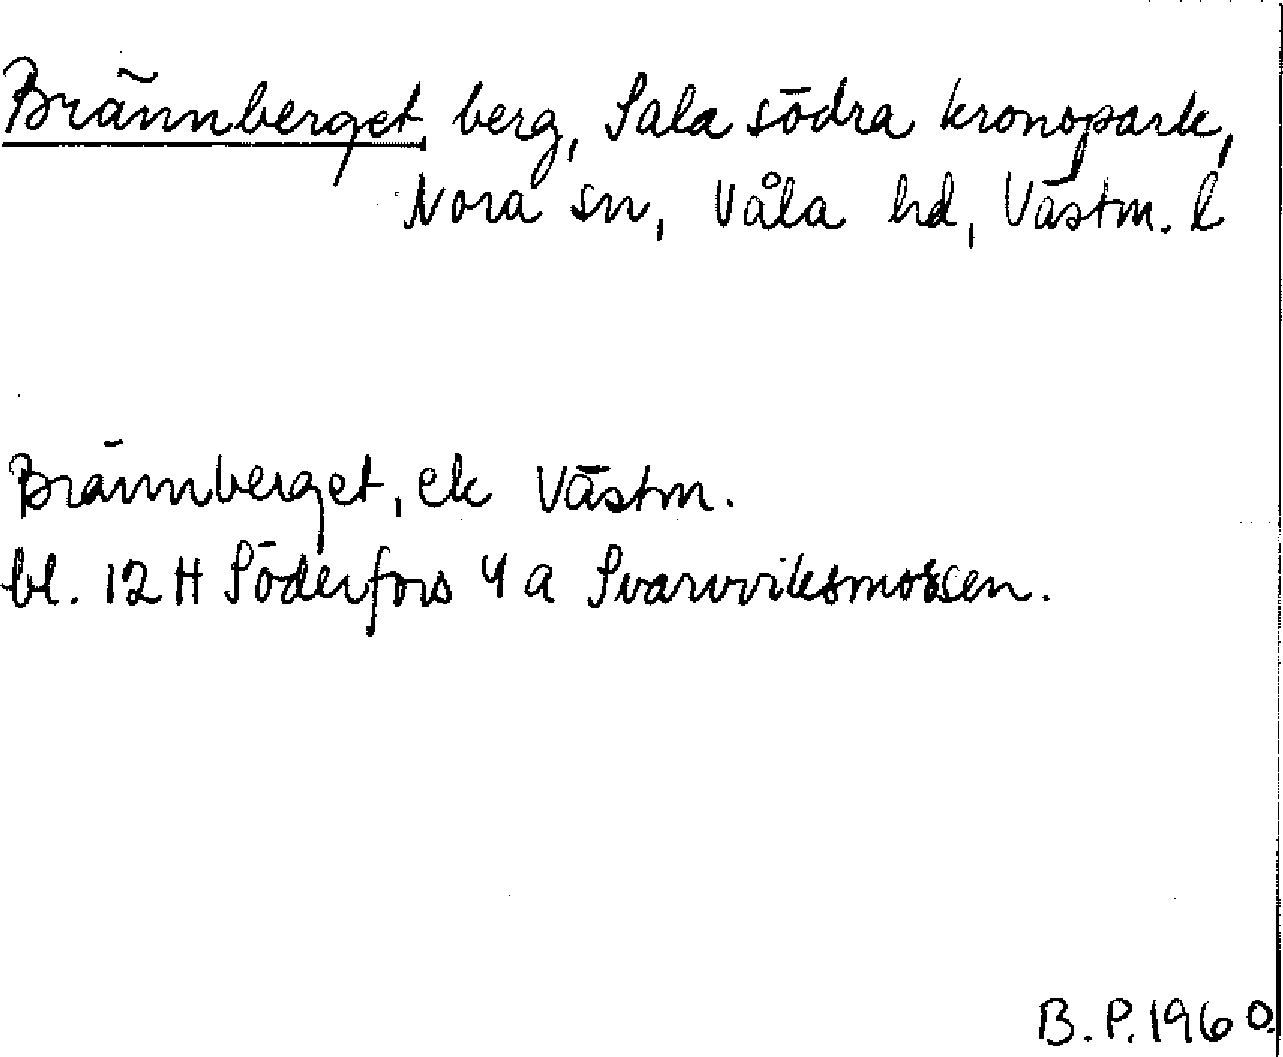 Brännberget, berg, Sala södra kronopark,
Nora sn, Våla hd, Västm. l
Brännberget, ek Västm.
bl. 12 H Söderfors 4 a Svarvviksmossen.
B. P. 1960.